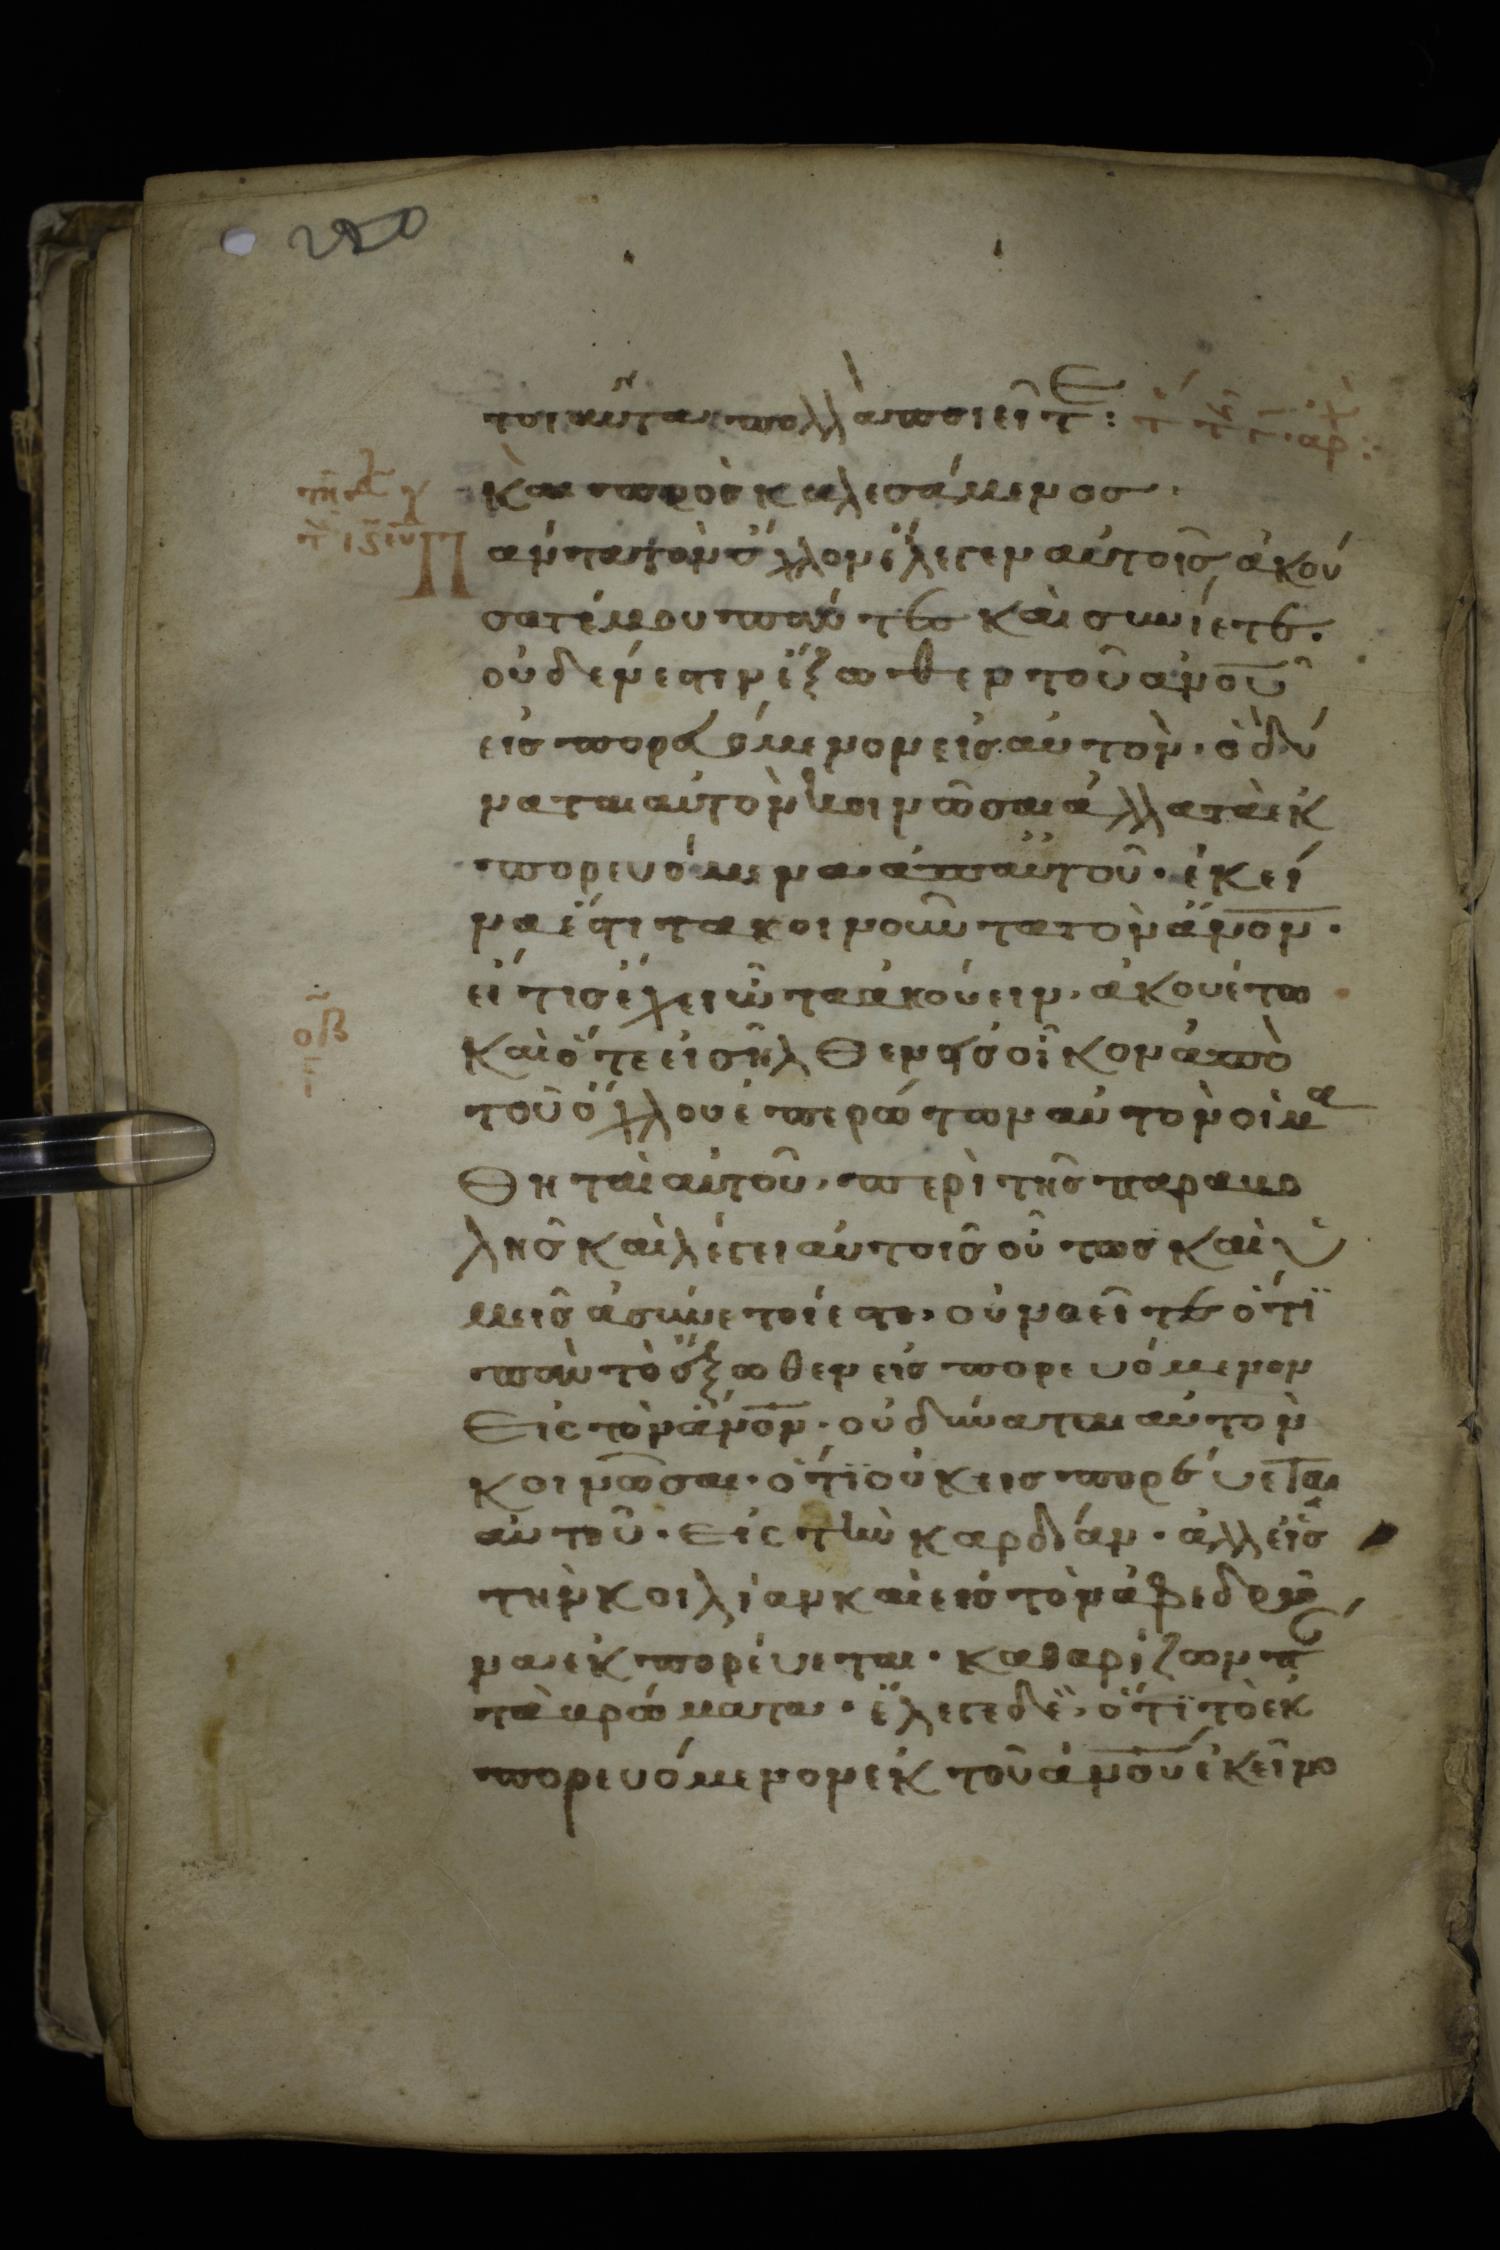 τοιαῦτα πολλὰ ποιεῖτε:
Καὶ προσκαλεσάμενος
πάντα τὸν ὄχλον ἔλεγεν αὐτοῖς, ἀκού
σατέ μου πάντες καὶ συνίετε.
οὐδέν ἐστιν ἔξωθεν τοῦ ἀνου
εἰσπορευόμενον εἰς αὐτὸν. ὃ δύ
ναται αὐτὸν κοινῶσαι ἀλλὰ τὰ ἐκ
πορευόμενα ἀπ αὐτοῦ. ἐκεῖ
νά ἐστι τὰ κοινοῦντα τὸν ἄνον.
εἴ τις ἔχει ὦτα ἀκούειν, ἀκουέτω
καὶ ὅτε εἰσῆλθεν εἰς οἶκον ἀπὸ
τοῦ ὄχλου ἐπερώτων αὐτὸν οἱ μα
θηταὶ αὐτοῦ, περὶ τῆς παραβο
λῆς καὶ λέγει αὐτοῖς οὕτως καὶ ὑ
μεῖς ἀσύνετοί ἐστε, οὐ νοεῖτε ὅτι
πᾶν τὸ ἔξωθεν εἰσπορευόμενον
εἰς τὸν ἄνον. οὐ δύναται αὐτὸν
κοινῶσαι. ὅτι οὐκ εἰσπορεύεται
αὐτοῦ. εἰς τὴν καρδίαν. ἀλλ εἰς
τὴν κοιλίαν καὶ εἰς τὸν ἀφεδρῶ
να ἐκπορεύεται. καθαρίζων πά
τὰ βρώματα. ἔλεγε δὲ, ὅτι τὸ ἐκ
πορευόμενον ἐκ τοῦ ἀνου ἐκεῖνο
οβ